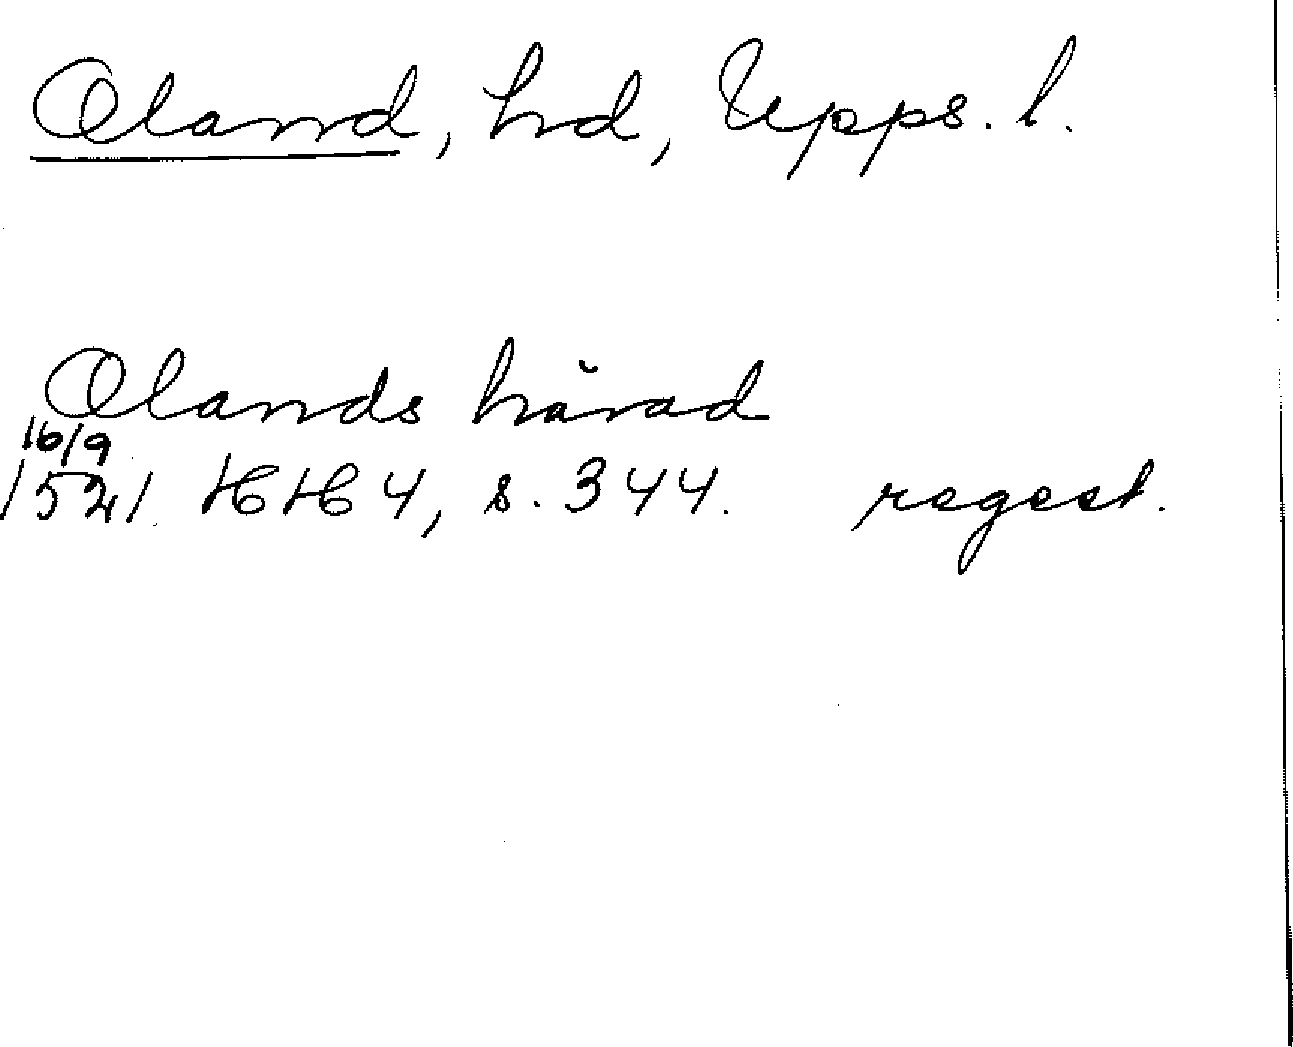 Oland, hd, Upps. l.
Olands härad
16/9
1521 HH 4, s. 344. regest.